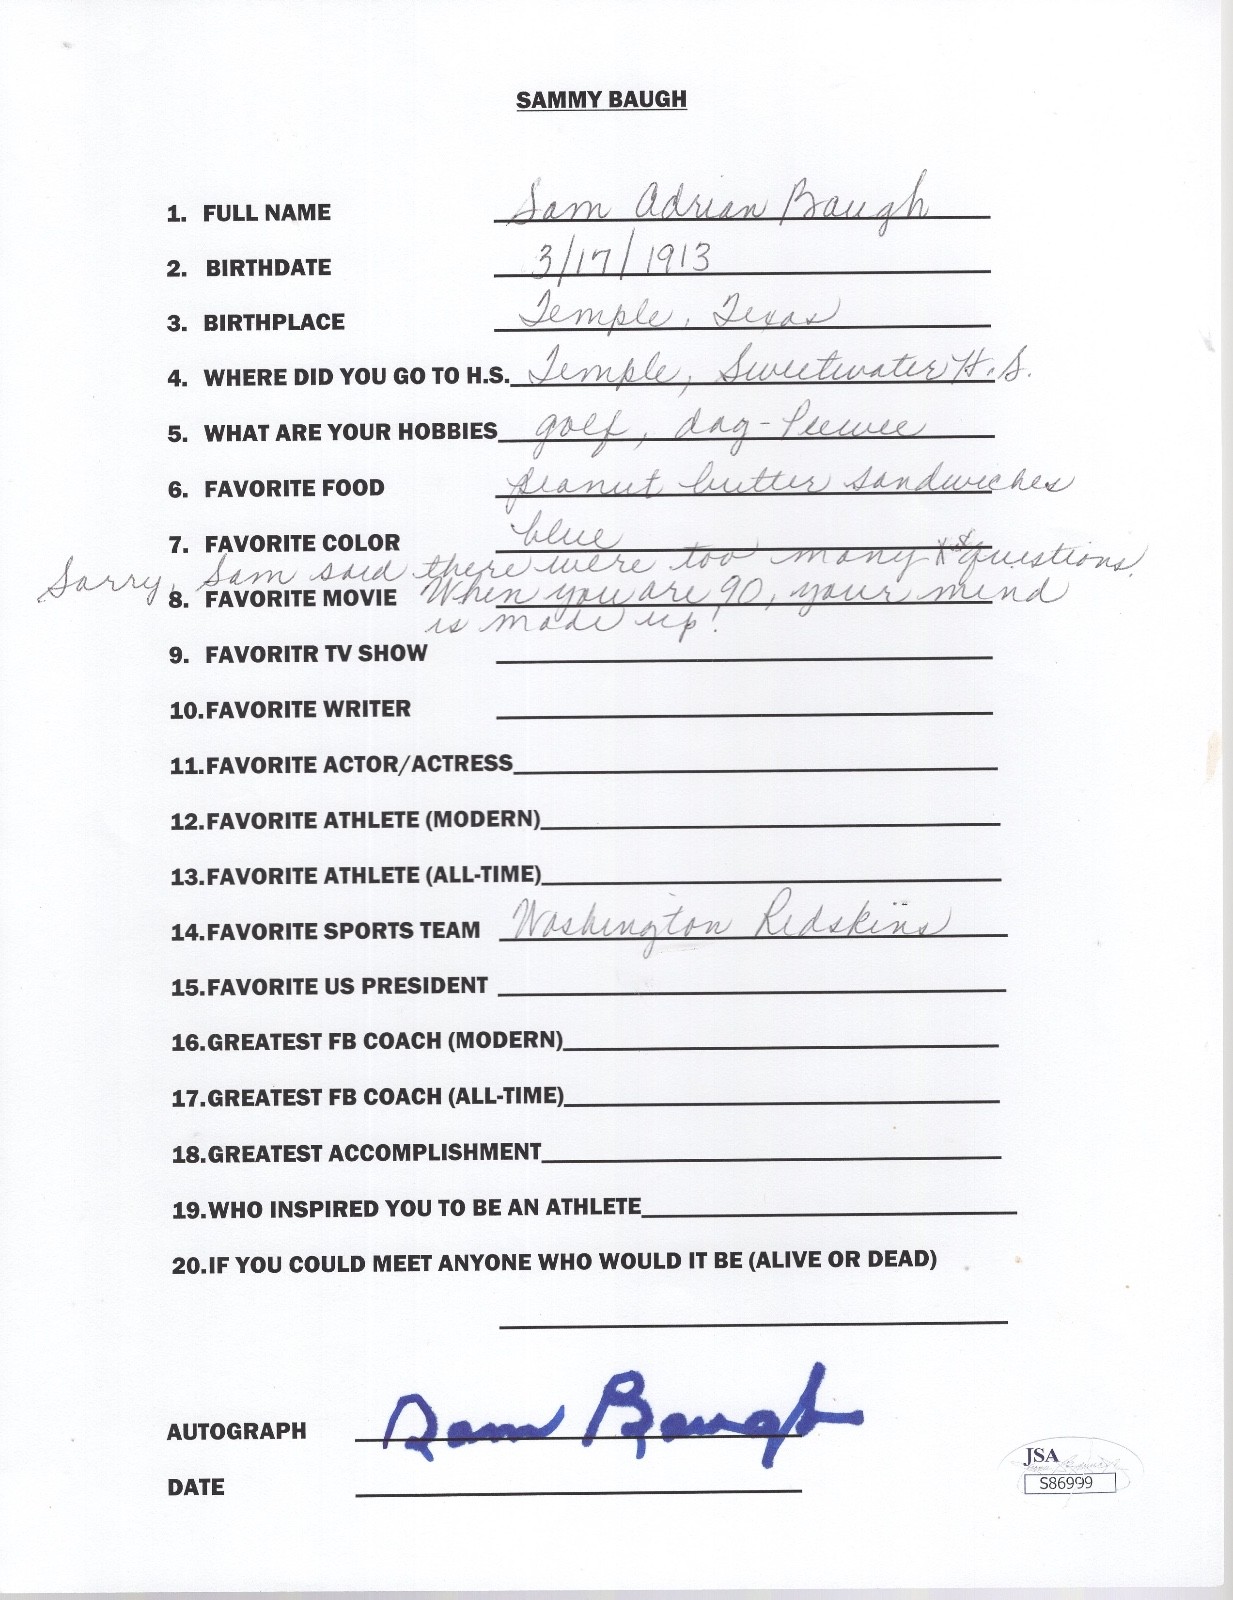 SAMMY BAUGH
1. FULL NAME Sam Adrian Baugh
2. BIRTHDATE 3/17/1913
3. BIRTHPLACE Temple, Texas
4. WHERE DID YOU GO TO H.S. Temple, Sweetwater H.S.
5. WHAT ARE YOUR HOBBIES golf, dog-Peewee
6. FAVORITE FOOD peanut butter sandwiches
7. FAVORITE COLOR blue
Sorry, Sam said there were too many questions.
8. FAVORITE MOVIE When you are 90, your mind
is made up!
9. FAVORITR TV SHOW
10. FAVORITE WRITER
11. FAVORITE ACTOR/ACTRESS
12. FAVORITE ATHLETE (MODERN)
13. FAVORITE ATHLETE (ALL-TIME)
14. FAVORITE SPORTS TEAM Washington Redskins
15. FAVORITE US PRESIDENT
16. GREATEST FB COACH (MODERN)
17. GREATEST FB COACH (ALL-TIME)
18. GREATEST ACCOMPLISHMENT
19. WHO INSPIRED YOU TO BE AN ATHLETE
20. IF YOU COULD MEET ANYONE WHO WOULD IT BE (ALIVE OR DEAD)
AUTOGRAPH Sam Baugh
DATE
JSA
S86999